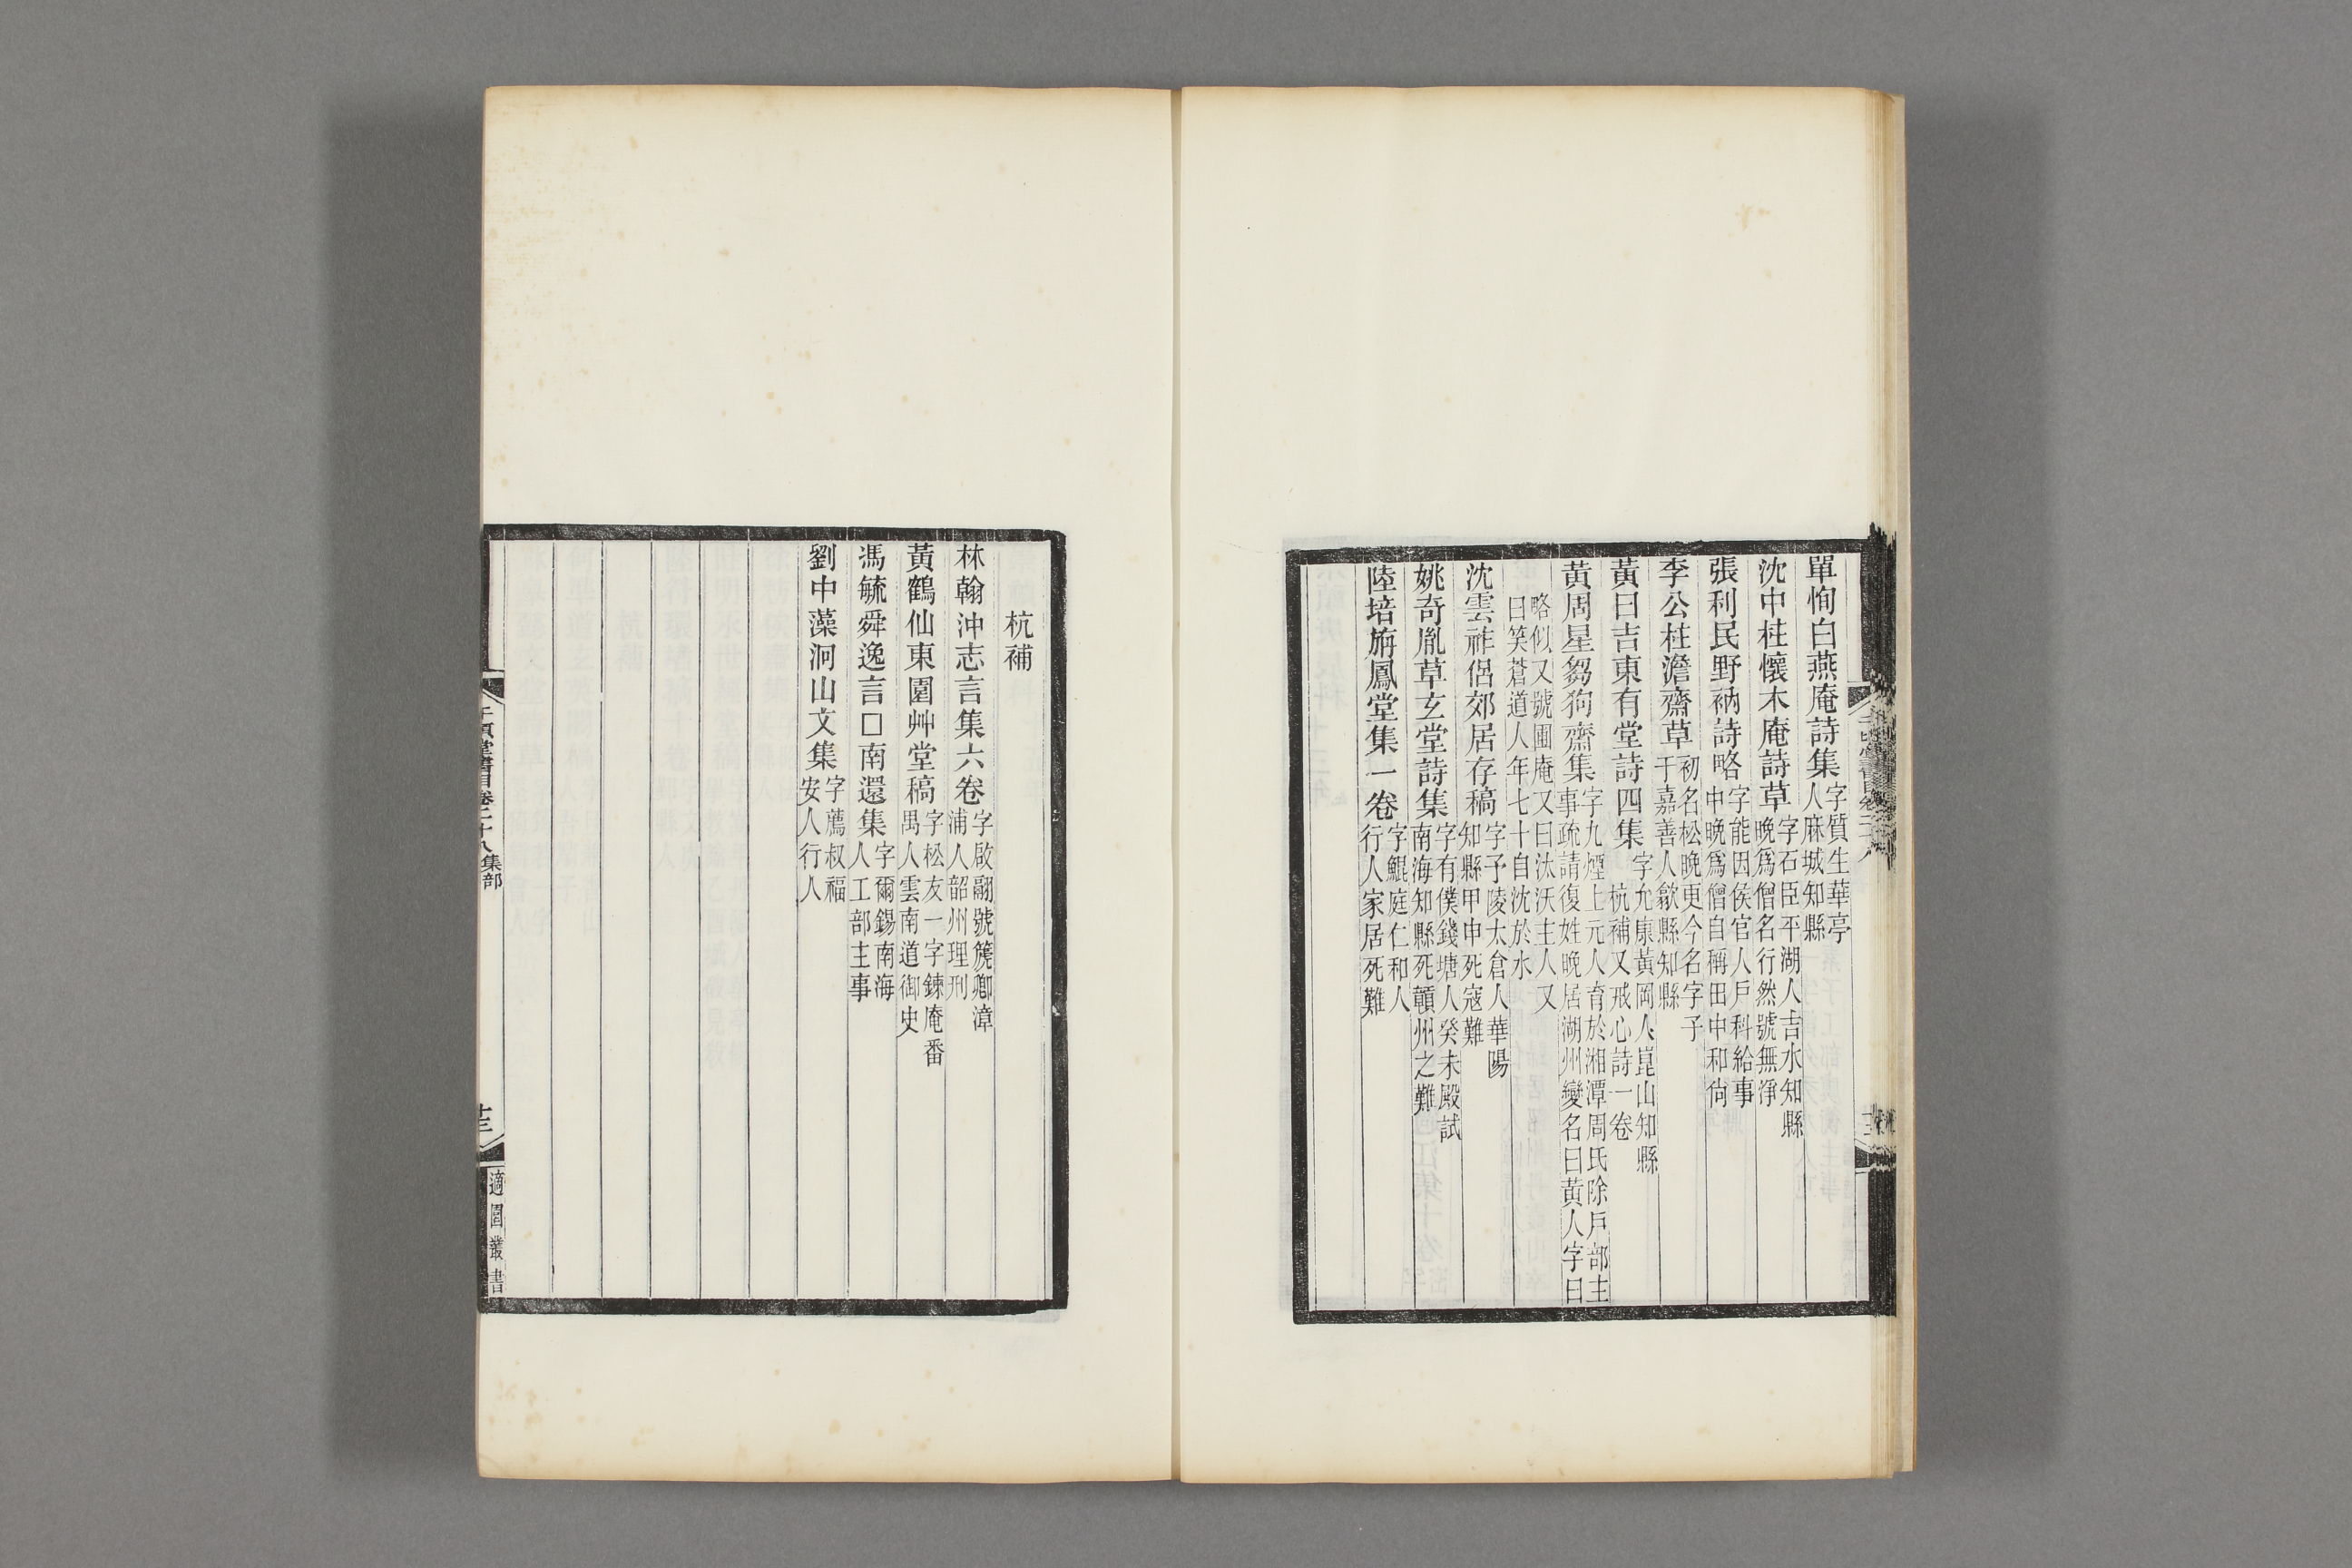 單恂白燕庵詩集字質生華亭人麻城知縣
沈中柱懷木庵詩草字石臣平湖人吉水知縣晚爲僧名行然號無淨
張利民野衲詩略字能因侯官人戶科給事中晚爲僧自稱田中和尙
李公柱澹齋草初名松晚更今名字子于嘉善人歙縣知縣
黃日吉東有堂詩四集字允康黃岡人崑山知縣杭補又戒心詩一卷
黃周星芻狗齋集字九煙上元人育於湘潭周氏除戶部主事疏請復姓晚居湖州變名曰黃人字曰
略似又號圃庵又曰汰沃主人又曰笑蒼道人年七十自沈於水
沈雲祚侶郊居存稿字予陵太倉人華陽知縣甲申死寇難
姚奇胤草玄堂詩集字有僕錢塘人癸未殿試南海知縣死贛州之難
陸培旃鳳堂集一卷字鯤庭仁和人行人家居死難
杭補
林翰沖志言集六卷字啟翮號箎卿漳浦人韶州理刑
黃鶴仙東園艸堂稿字松友一字鍊庵番禺人雲南道御史
馮毓舜逸言□南還集字爾錫南海人工部主事
劉中藻泂山文集字薦叔福安人行人
千頃堂書目卷二十八集部
十三
適園叢書